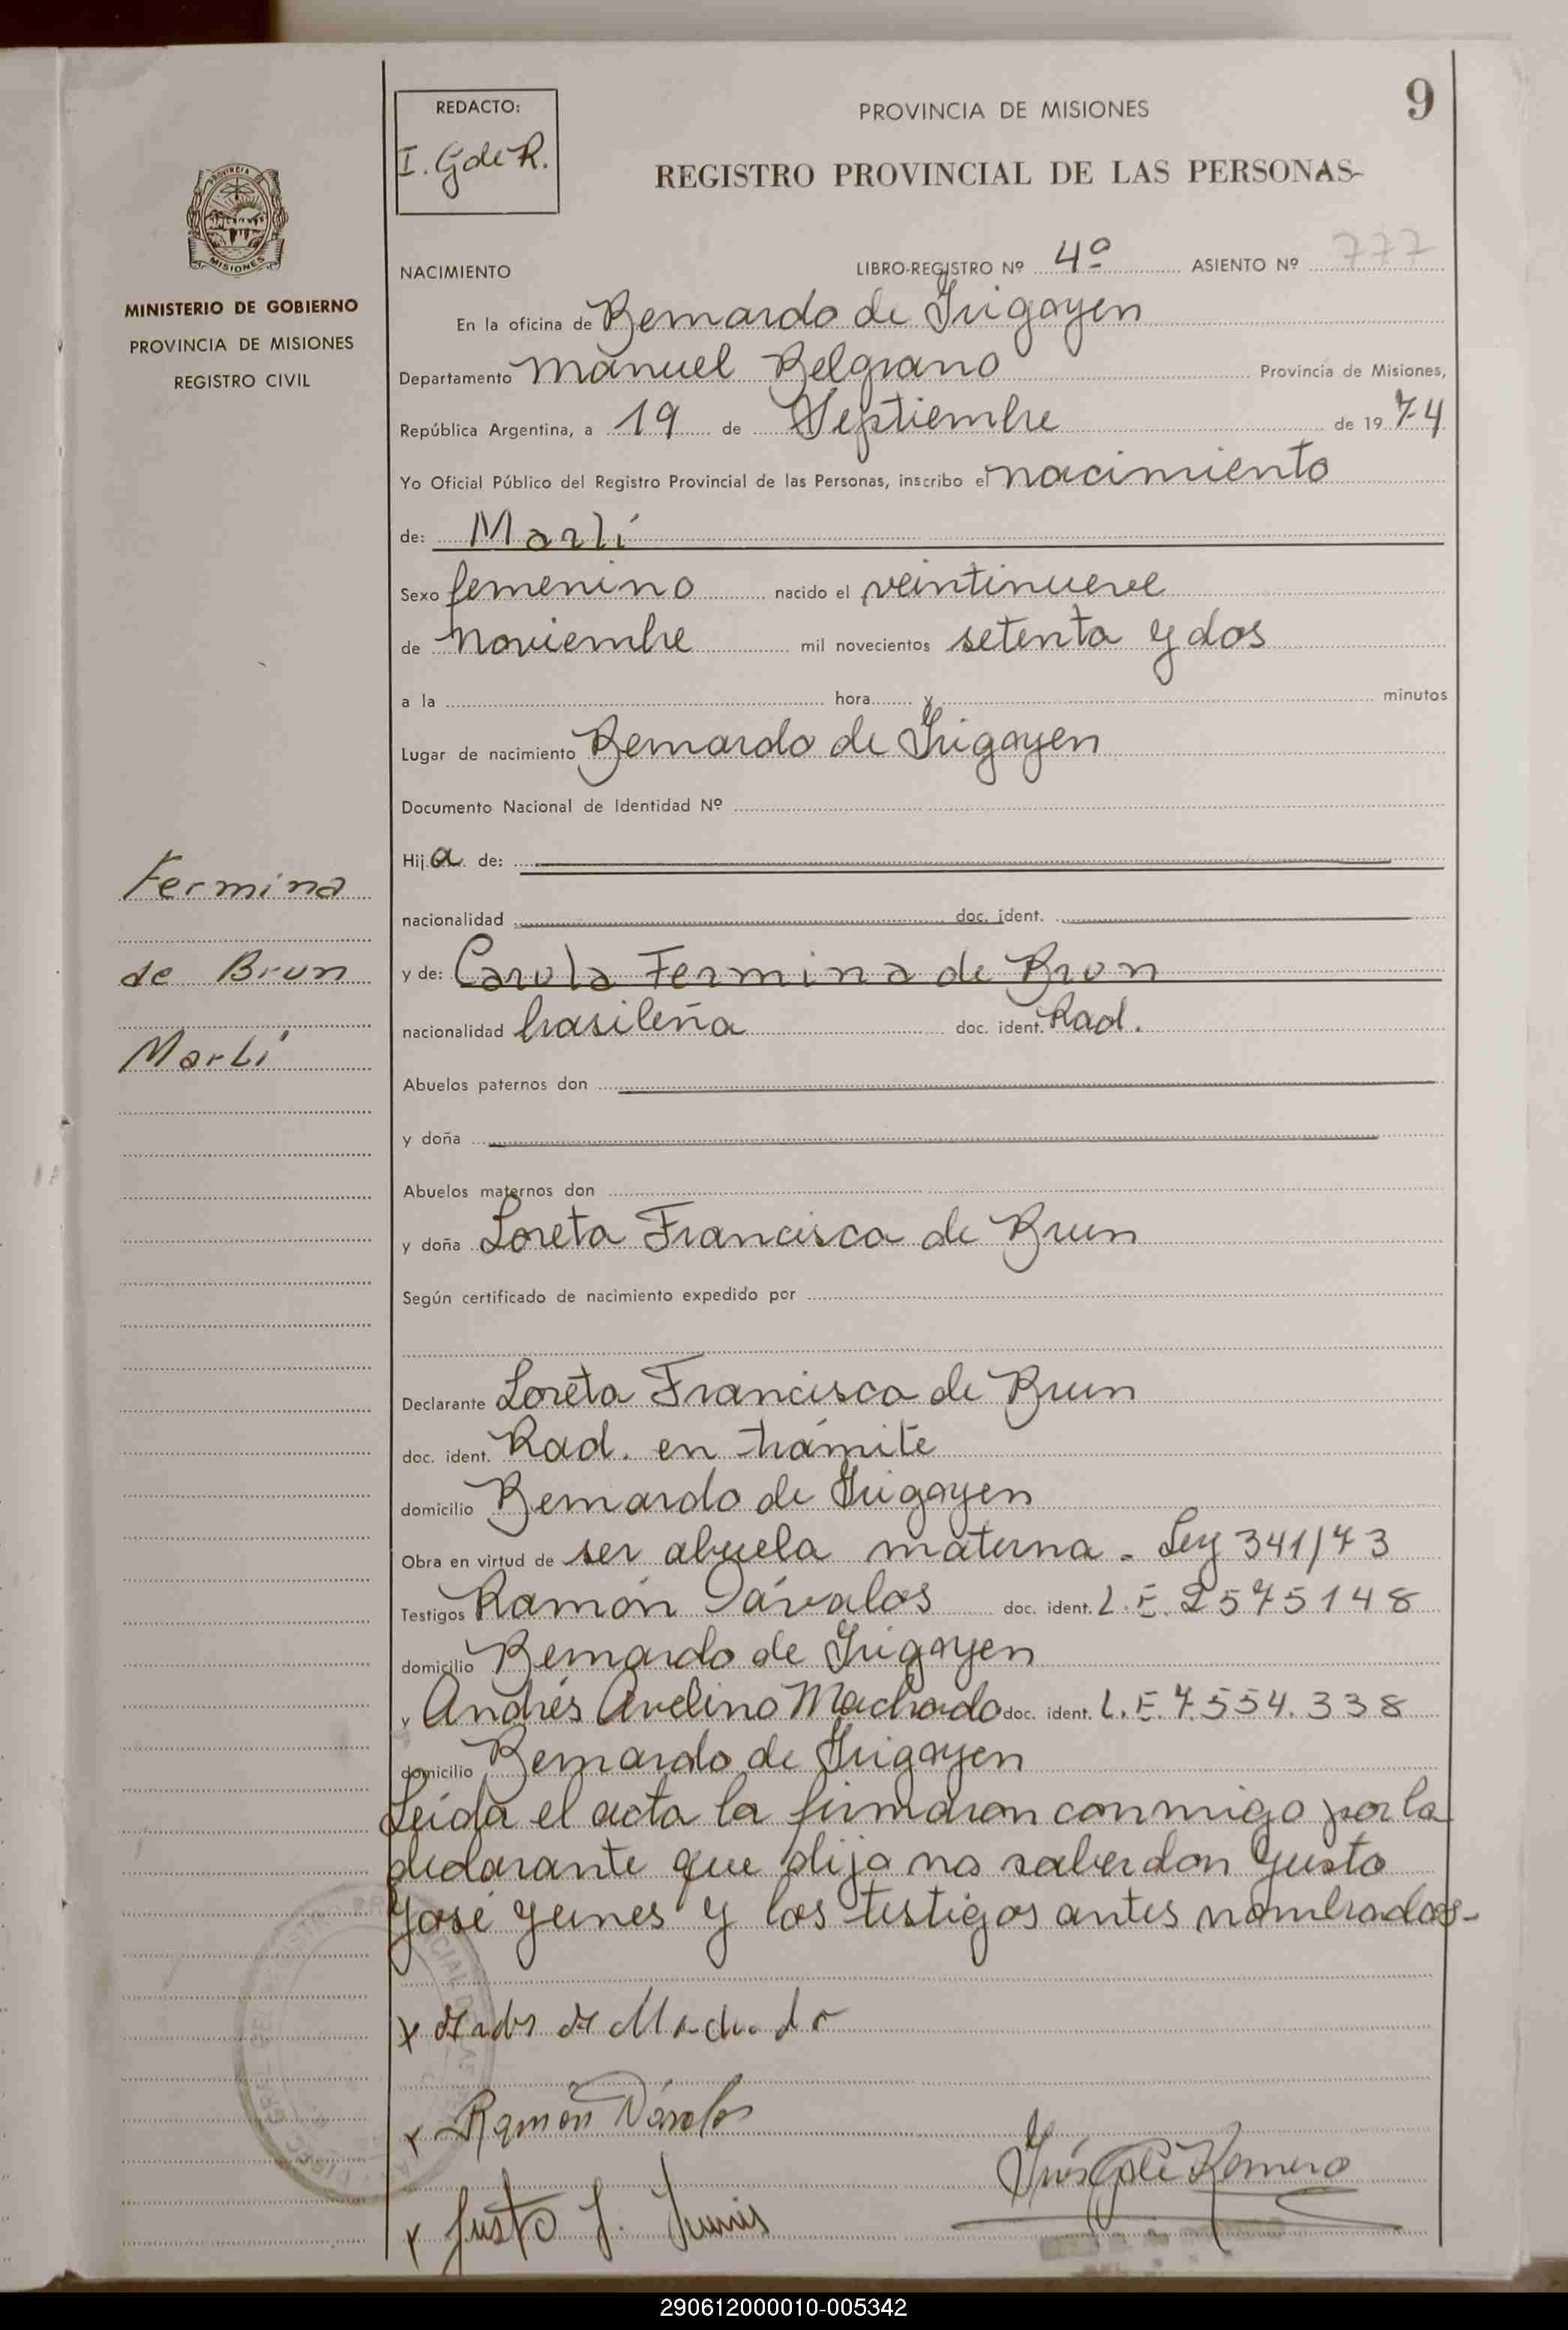 9
REDACTO:
I. G de R.
PROVINCIA DE MISIONES
REGISTRO PROVINCIAL DE LAS PERSONAS-
PROVINCIA DE
MISIONES
MINISTERIO DE GOBIERNO
PROVINCIA DE MISIONES
REGISTRO CIVIL
NACIMIENTO LIBRO-REGISTRO Nº 4º ASIENTO Nº 777
En la oficina de Bernardo de Irigoyen
Departamento Manuel Belgrano Provincia de Misiones,
República Argentina, a 19 de Septiembre de 1974
Yo Oficial Público del Registro Provincial de las Personas, inscribo el nacimiento
de: Marlí
Sexo femenino nacido el veintinueve
de noviembre mil novecientos setenta y dos
a la hora y minutos
Lugar de nacimiento Bernardo de Irigoyen
Documento Nacional de Identidad Nº
Hija de:
nacionalidad doc. ident.
Fermina
de Brun
Marlí
y de: Carola Fermina de Brun
nacionalidad brasileña doc. ident. Rad.
Abuelos paternos don
y doña
Abuelos maternos don
y doña Loreta Francisca de Brun
Según certificado de nacimiento expedido por
Declarante Loreta Francisca de Brun
doc. ident. Rad. en trámite
domicilio Bernardo de Irigoyen
Obra en virtud de ser abuela materna - Ley 341/73
Testigos Ramón Dávalos doc. ident. L.E. 2575148
domicilio Bernardo de Irigoyen
y Andrés Avelino Machado doc. ident. L.E. 7.554.338
domicilio Bernardo de Irigoyen
Leída el acta la firmaron conmigo por la
declarante que dijo no saber don Justo
José Yunes y los testigos antes nombrados-
x Machado
x Ramón Dávalos
Inés G de Romero
x Justo J. Yunis
290612000010-005342